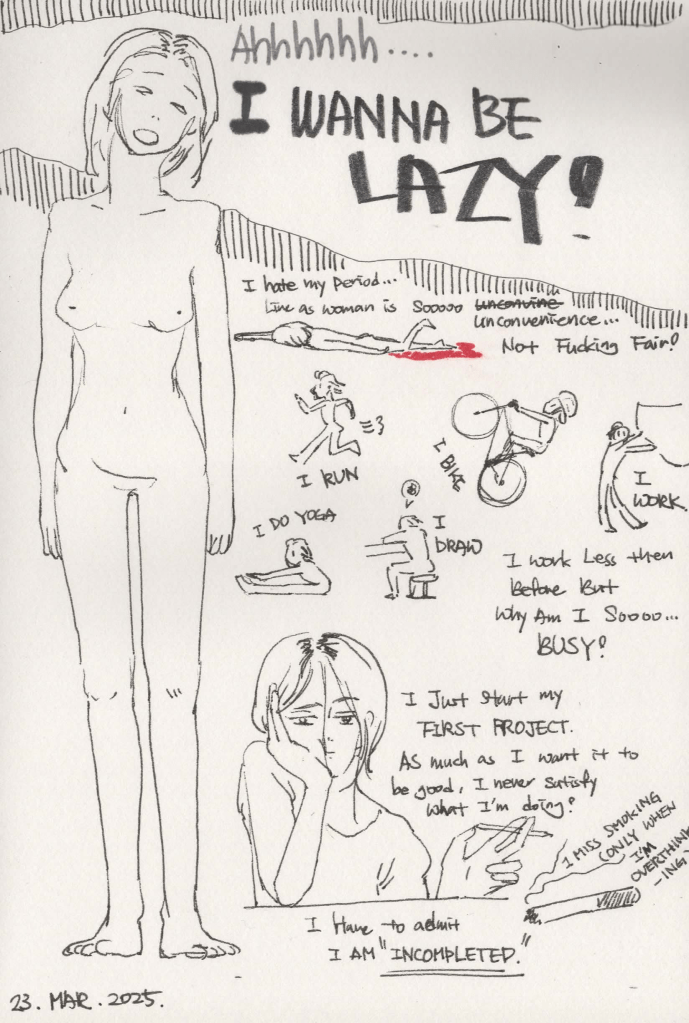 Ahhhhhh....
I WANNA BE
LAZY!
I hate my Period...
Live as woman is Soooo unconvine
unconvenience...
Not Fucking Fair!
I RUN
I BIKE
I WORK.
I DO YOGA
I DRAW
I work Less then
Before But
Why Am I Soooo...
BUSY!
I Just start my
FIRST PROJECT.
As much as I want it to
be good, I never satisfy
what I'm doing?
I MISS SMOKING
(ONLY WHEN
I'M
OVERTHINK
-ING-
I Have to admit
I AM "INCOMPLETED."
23. MAR. 2025.